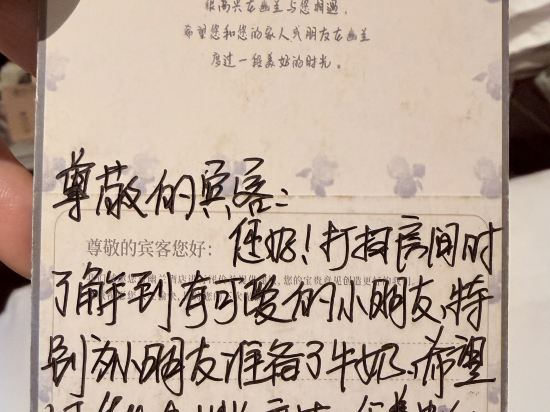 很高兴在幽兰与您相遇,
希望您和您的家人或朋友在幽兰
度过一段美好的时光。
尊敬的宾客:
尊敬的宾客您好:
您好!打扫房间时
您的宝贵意见创造更好的
了解到有可爱的小朋友,特
别为小朋友准备了牛奶,希望